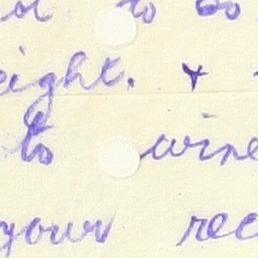 to so
eight. +
to wire
your rec